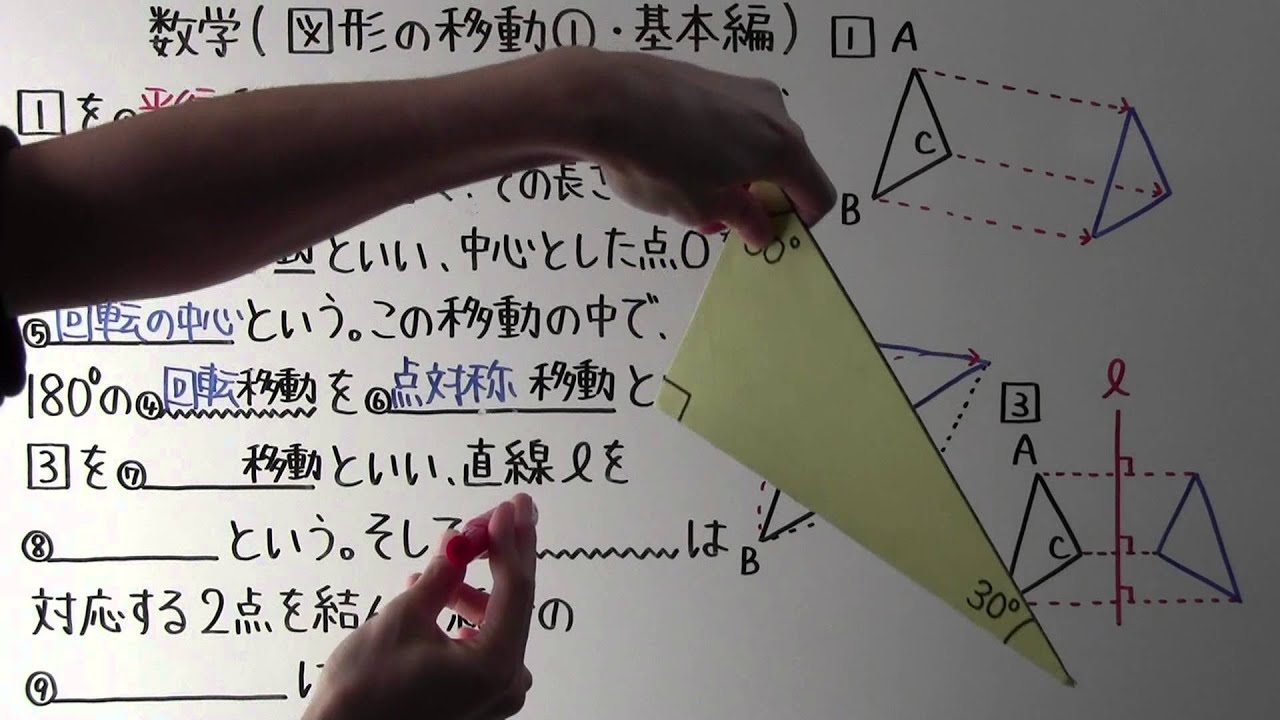 数学(図形の移動①・基本編)
1を①平行
ての長さ
動といい、中心とした点O
⑤回転の中心という。この移動の中で、
180°の④回転移動を⑥点対称移動と
3を⑦移動といい、直線ℓを
⑧という。そして は
対応する2点を結ん の
⑨
1
A
C
B
60°
30°
B
3
ℓ
A
C